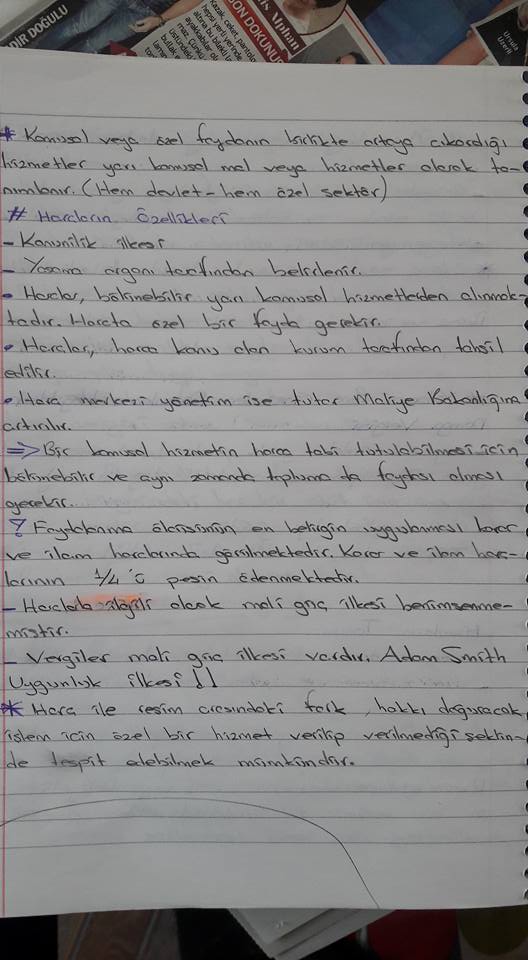 DİR DOĞULU
Kazak, ceket, pantolo
hepsi yerli yerinde
SON DOKUNUŞ
Alphan
* Kamusal veya özel faydanın birlikte ortaya çıkardığı
hizmetler yarı kamusal mal veya hizmetler olarak ta-
nımlanır. (Hem devlet - hem özel sektör)
# Harcların Özellikleri
- Kanunilik ilkesi
- Yasama organı tarfından belirlenir.
• Harclar, bölünebilir yarı kamusal hizmetlerden alınmak-
tadır. Harcta özel bir fayda gerekir.
• Harclar, harca konu olan kurum tarafından tahsil
edilir.
• Harc merkezi yönetim ise tutar Maliye Bakanlığına
artırılır.
=> Bir kamusal hizmetin harca tabi tutulabilmesi için
bölünebilir ve aynı zamanda topluma da faydası olması
gerekir.
? Faydalanma ölçüsünün en belirgin uygulanması karar
ve ilam harclarında görülmektedir. Karar ve ilam harc-
larının 1/4 'ü peşin ödenmektedir.
- Harclarla ilgili olarak mali güç ilkesi benimsenme-
miştir.
- Vergiler mali güç ilkesi vardır. Adam Smith
Uygunluk ilkesi !!
* Harc ile resim arasındaki fark, hakkı doğuracak
işlem için özel bir hizmet verilip verilmediği şeklin-
de tespit edebilmek mümkündür.